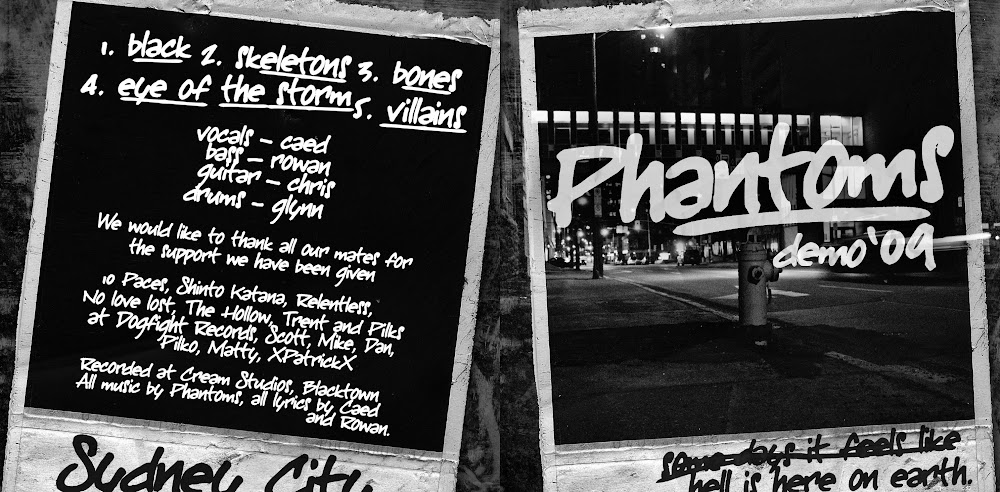 1. black 2. skeletons 3. bones
4. eye of the storm 5. villains
vocals – caed
bass – rowan
guitar – chris
drums – glynn
We would like to thank all our mates for
the support we have been given
10 Paces, Shinto Katana, Relentless,
No love lost, The Hollow, Trent and Pilks
at Dogfight Records, Scott, Mike, Dan,
Pilko, Matty, XPatrickX
Recorded at Cream Studios, Blacktown
All music by Phantoms, all lyrics by Caed
and Rowan.
Sydney City
Phantoms
demo '09
some days it feels like
hell is here on earth.